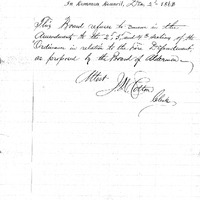 In Common Council, Dec 3d 1860
This Board refuse to concur in the
Amendments to the 2d, 3d, and 4th Sections of the
Ordinance in relation to the Fire Department,
as proposed by the Board of Aldermen
Attest
Clerk